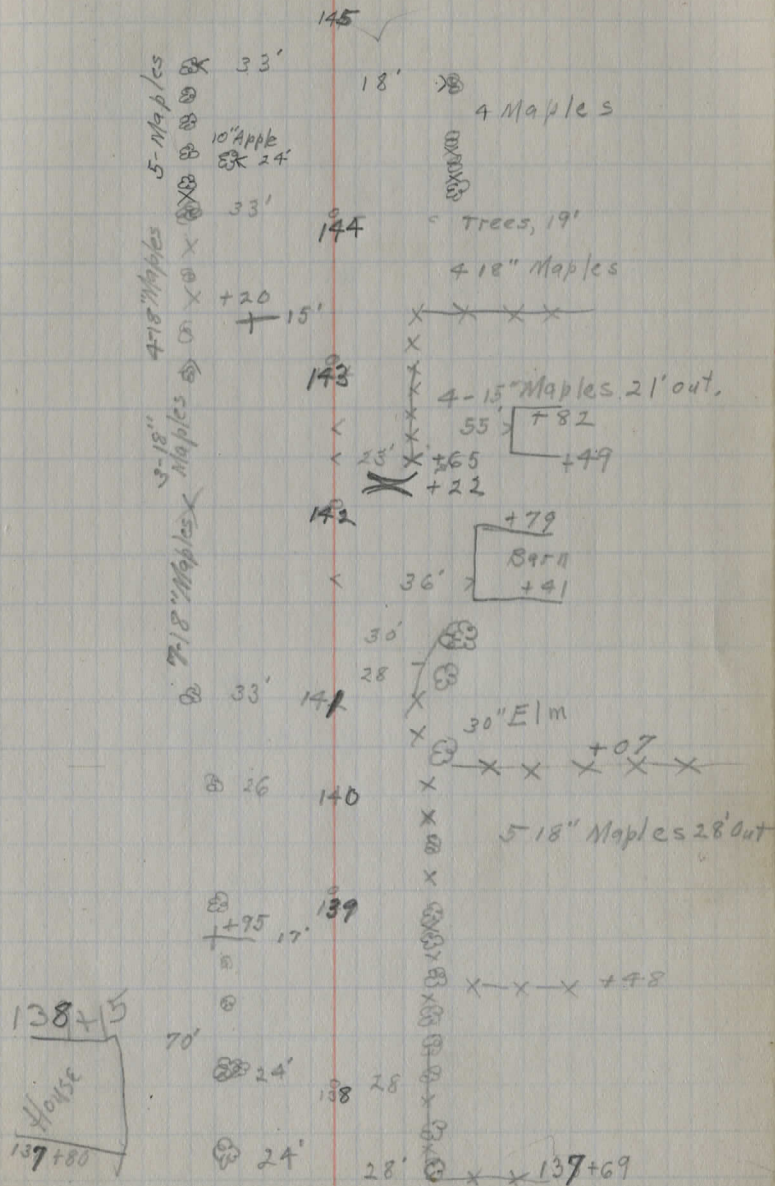 145
5-Maples
33'
18'
4 Maples
10" Apple
24'
33'
144
Trees, 19'
4 18" Maples
4-18" Maples
+20
15'
143
4-15" Maples 21' out.
3-18" Maples
55'
+82
23'
+65
+49
+22
142
+79
Barn
36'
+41
7-18" Maples
30'
28
33'
141
30" Elm
+07
26
140
5 18" Maples 28' Out
139
+95
17'
+48
138+15
70'
House
24'
138
28
137+80
24'
28'
137+69